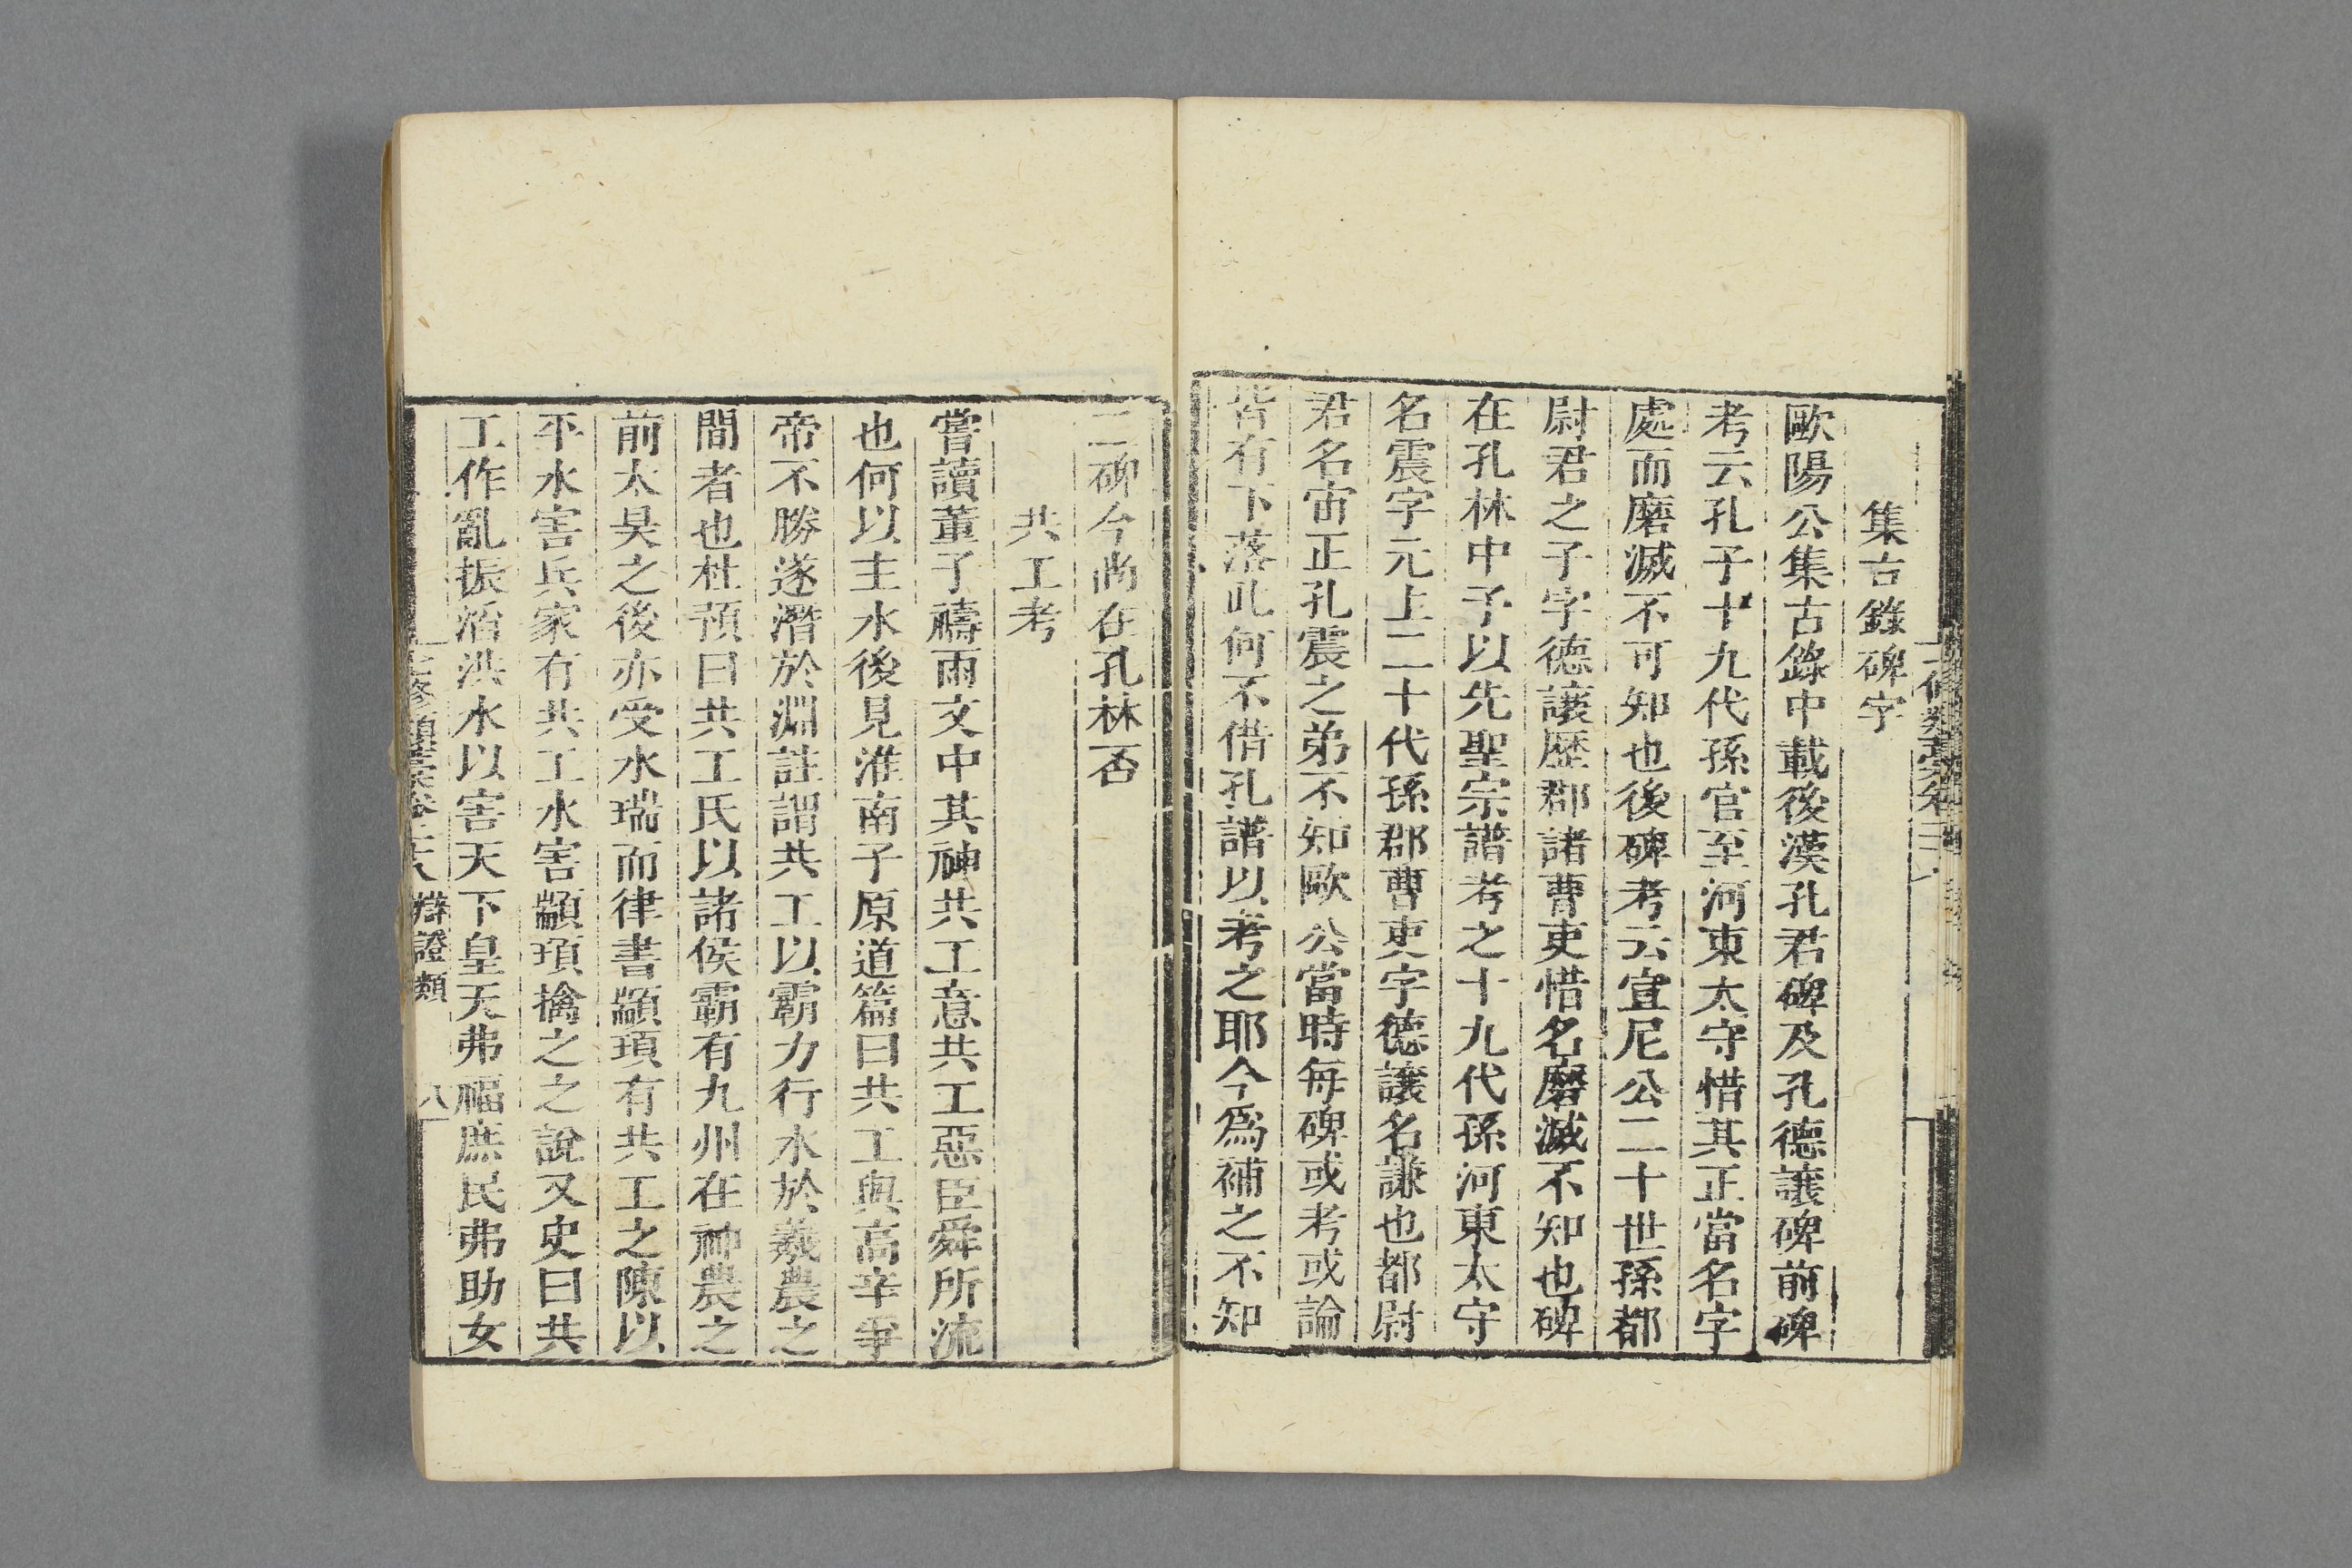 集古錄碑字
歐陽公集古錄中載後漢孔君碑及孔德讓碑前碑
考云孔子十九代孫官至河東太守惜其正當名字
處而磨滅不可知也後碑考云宣尼公二十世孫都
尉君之子字德讓歷郡諸曹吏惜名磨滅不知也碑
在孔林中予以先聖宗譜考之十九代孫河東太守
名震字元上二十代孫郡曹吏字德讓名謙也都尉
君名宙正孔震之弟不知歐公當時每碑或考或論
皆有下落此何不借孔譜以考之耶今為補之不知
二碑今尚在孔林否
共工考
嘗讀董子禱雨文中其神共工意共工惡臣舜所流
也何以主水後見淮南子原道篇曰共工與高辛爭
帝不勝遂潛於淵註謂共工以霸力行水於羲農之
間者也杜預曰共工氏以諸侯霸有九州在神農之
前太昊之後亦受水瑞而律書顓頊有共工之陳以
平水害兵家有共工水害顓頊擒之之說又史曰共
工作亂振滔洪水以害天下皇天弗福庶民弗助女
七修類藁卷二十八 辯證類 八